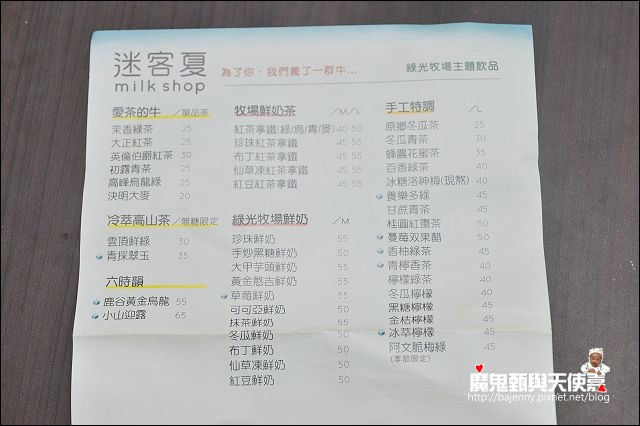 迷客夏
milk shop
為了你，我們養了一群牛...
綠光牧場主題飲品
愛茶的牛 /單品茶
茉香綠茶 25
大正紅茶 25
英倫伯爵紅茶 30
初露青茶 25
高峰烏龍綠 25
決明大麥 20
冷萃高山茶 /無糖限定
雲頂鮮綠 30
青採翠玉 35
六時韻
鹿谷黃金烏龍 55
小山迎露 65
牧場鮮奶茶 /M/L
紅茶拿鐵(綠/烏/青/麥) 40 50
珍珠紅茶拿鐵 45 55
布丁紅茶拿鐵 45 55
仙草凍紅茶拿鐵 45 55
紅豆紅茶拿鐵 45 55
綠光牧場鮮奶 /M
珍珠鮮奶 55
手炒黑糖鮮奶 50
大甲芋頭鮮奶 55
黃金憨吉鮮奶 55
草莓鮮奶 55
可可亞鮮奶 50
抹茶鮮奶 50
冬瓜鮮奶 50
布丁鮮奶 50
仙草凍鮮奶 50
紅豆鮮奶 50
手工特調 /L
原鄉冬瓜茶 25
冬瓜青茶 30
蜂農花蜜茶 35
百香綠茶 40
冰糖洛神梅(現熬) 40
養樂多綠 45
甘蔗青茶 45
桂圓紅棗茶 50
蔓莓双果醋 50
香柚綠茶 45
青檸香茶 40
檸檬綠茶 40
冬瓜檸檬 40
黑糖檸檬 45
金桔檸檬 45
冰萃檸檬 45
阿文脆梅綠 45
(季節限定)
魔鬼甄與天使嘉
http://bajenny.pixnet.net/blog